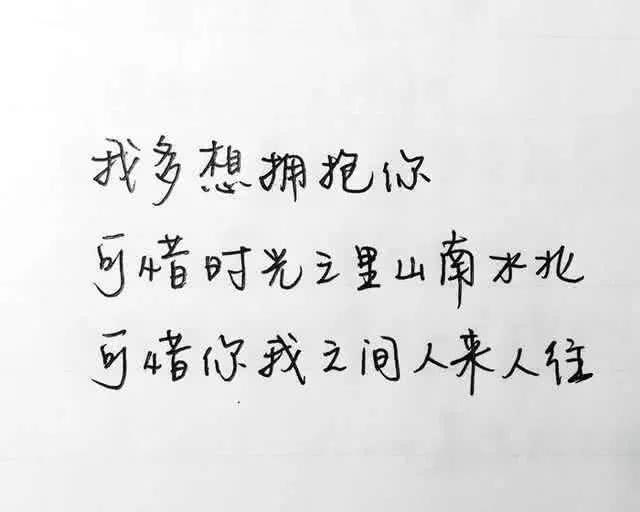 我多想拥抱你
可惜时光之里山南水北
可惜你我之间人来人往